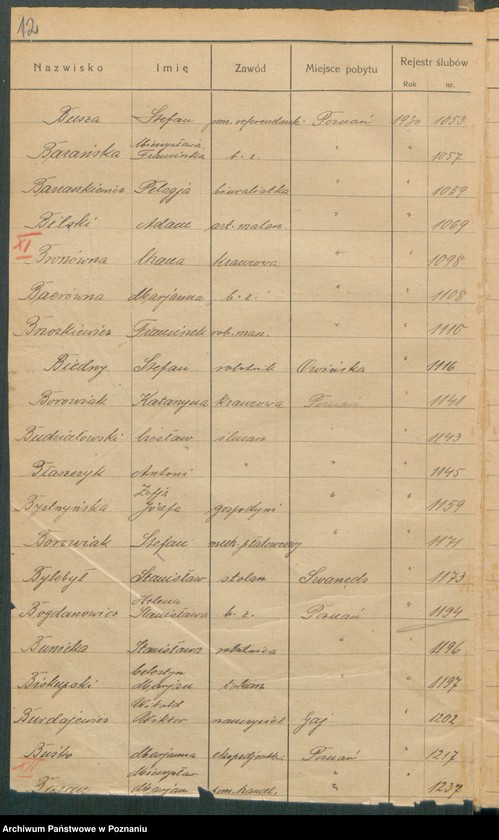 12
Nazwisko Imię Zawód Miejsce pobytu Rejestr ślubów
Rok nr.
Busza Stefan Poznań 1930 1053
Mieczysława
Barańska Franciszka b. z. " " 1057
Banaszkiewicz Pelagja biuralistka " " 1059
Bilski Adam art. malarz " " 1069
XI
Bronówna krawcowa " " 1098
Baerówna Marjanna b. z. " " 1108
Brzoskiewicz Franciszek " " 1110
Biedny Stefan rolnik Owińska " 1116
Borowiak Katarzyna krawcowa Poznań " 1141
Budziałowski Czesław ślusarz " " 1143
Błaszczyk Antoni " " " 1145
Zofja
Józefa gospodyni " " 1159
Borowiak Stefan mech. płatowcowy " " 1171
Byłobył Stanisław stolarz Swarzędz " 1173
Helena
Bogdanowicz Stanisława b. z. Poznań " 1194
Bunicka Stanisława robotnica " " 1196
Celestyn
Biskupski Marjan " " 1197
Witold
Burdajewicz Wiktor nauczyciel Gaj " 1202
Marjanna ekspedjentka Poznań " 1217
Mieczysław
Marjan pom. handl. " " 1237
Archiwum Państwowe w Poznaniu